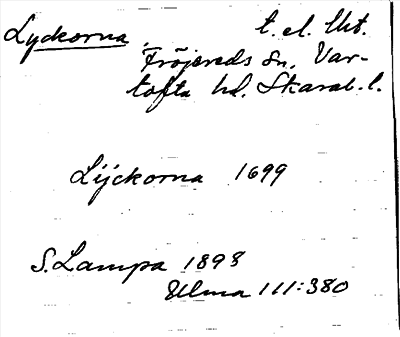 Lyckorna. t. el. lht.
Fröjereds sn. Var-
tofta hd. Skarab. l.
Lijckorna 1699
S. Lampa 1898
Ulma 111:380